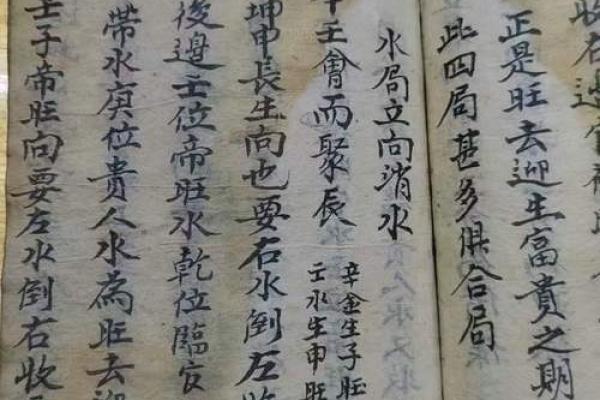 收右邊官
正是旺去迎生富貴之期
此四局甚多俱合局
水局立向消水
辛壬會而聚辰
辛金生子旺
壬水生申旺
坤申長生向也要右水倒左收
後邊壬位帝旺水乾位臨官
帶水庚位貴人水為旺去迎
壬子帝旺向要左水倒右收